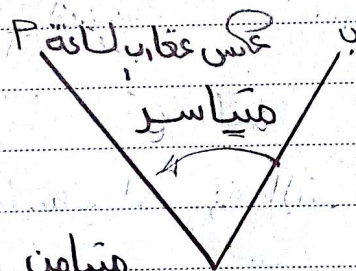 عكس عقارب لساعة
متياسر
متيامن